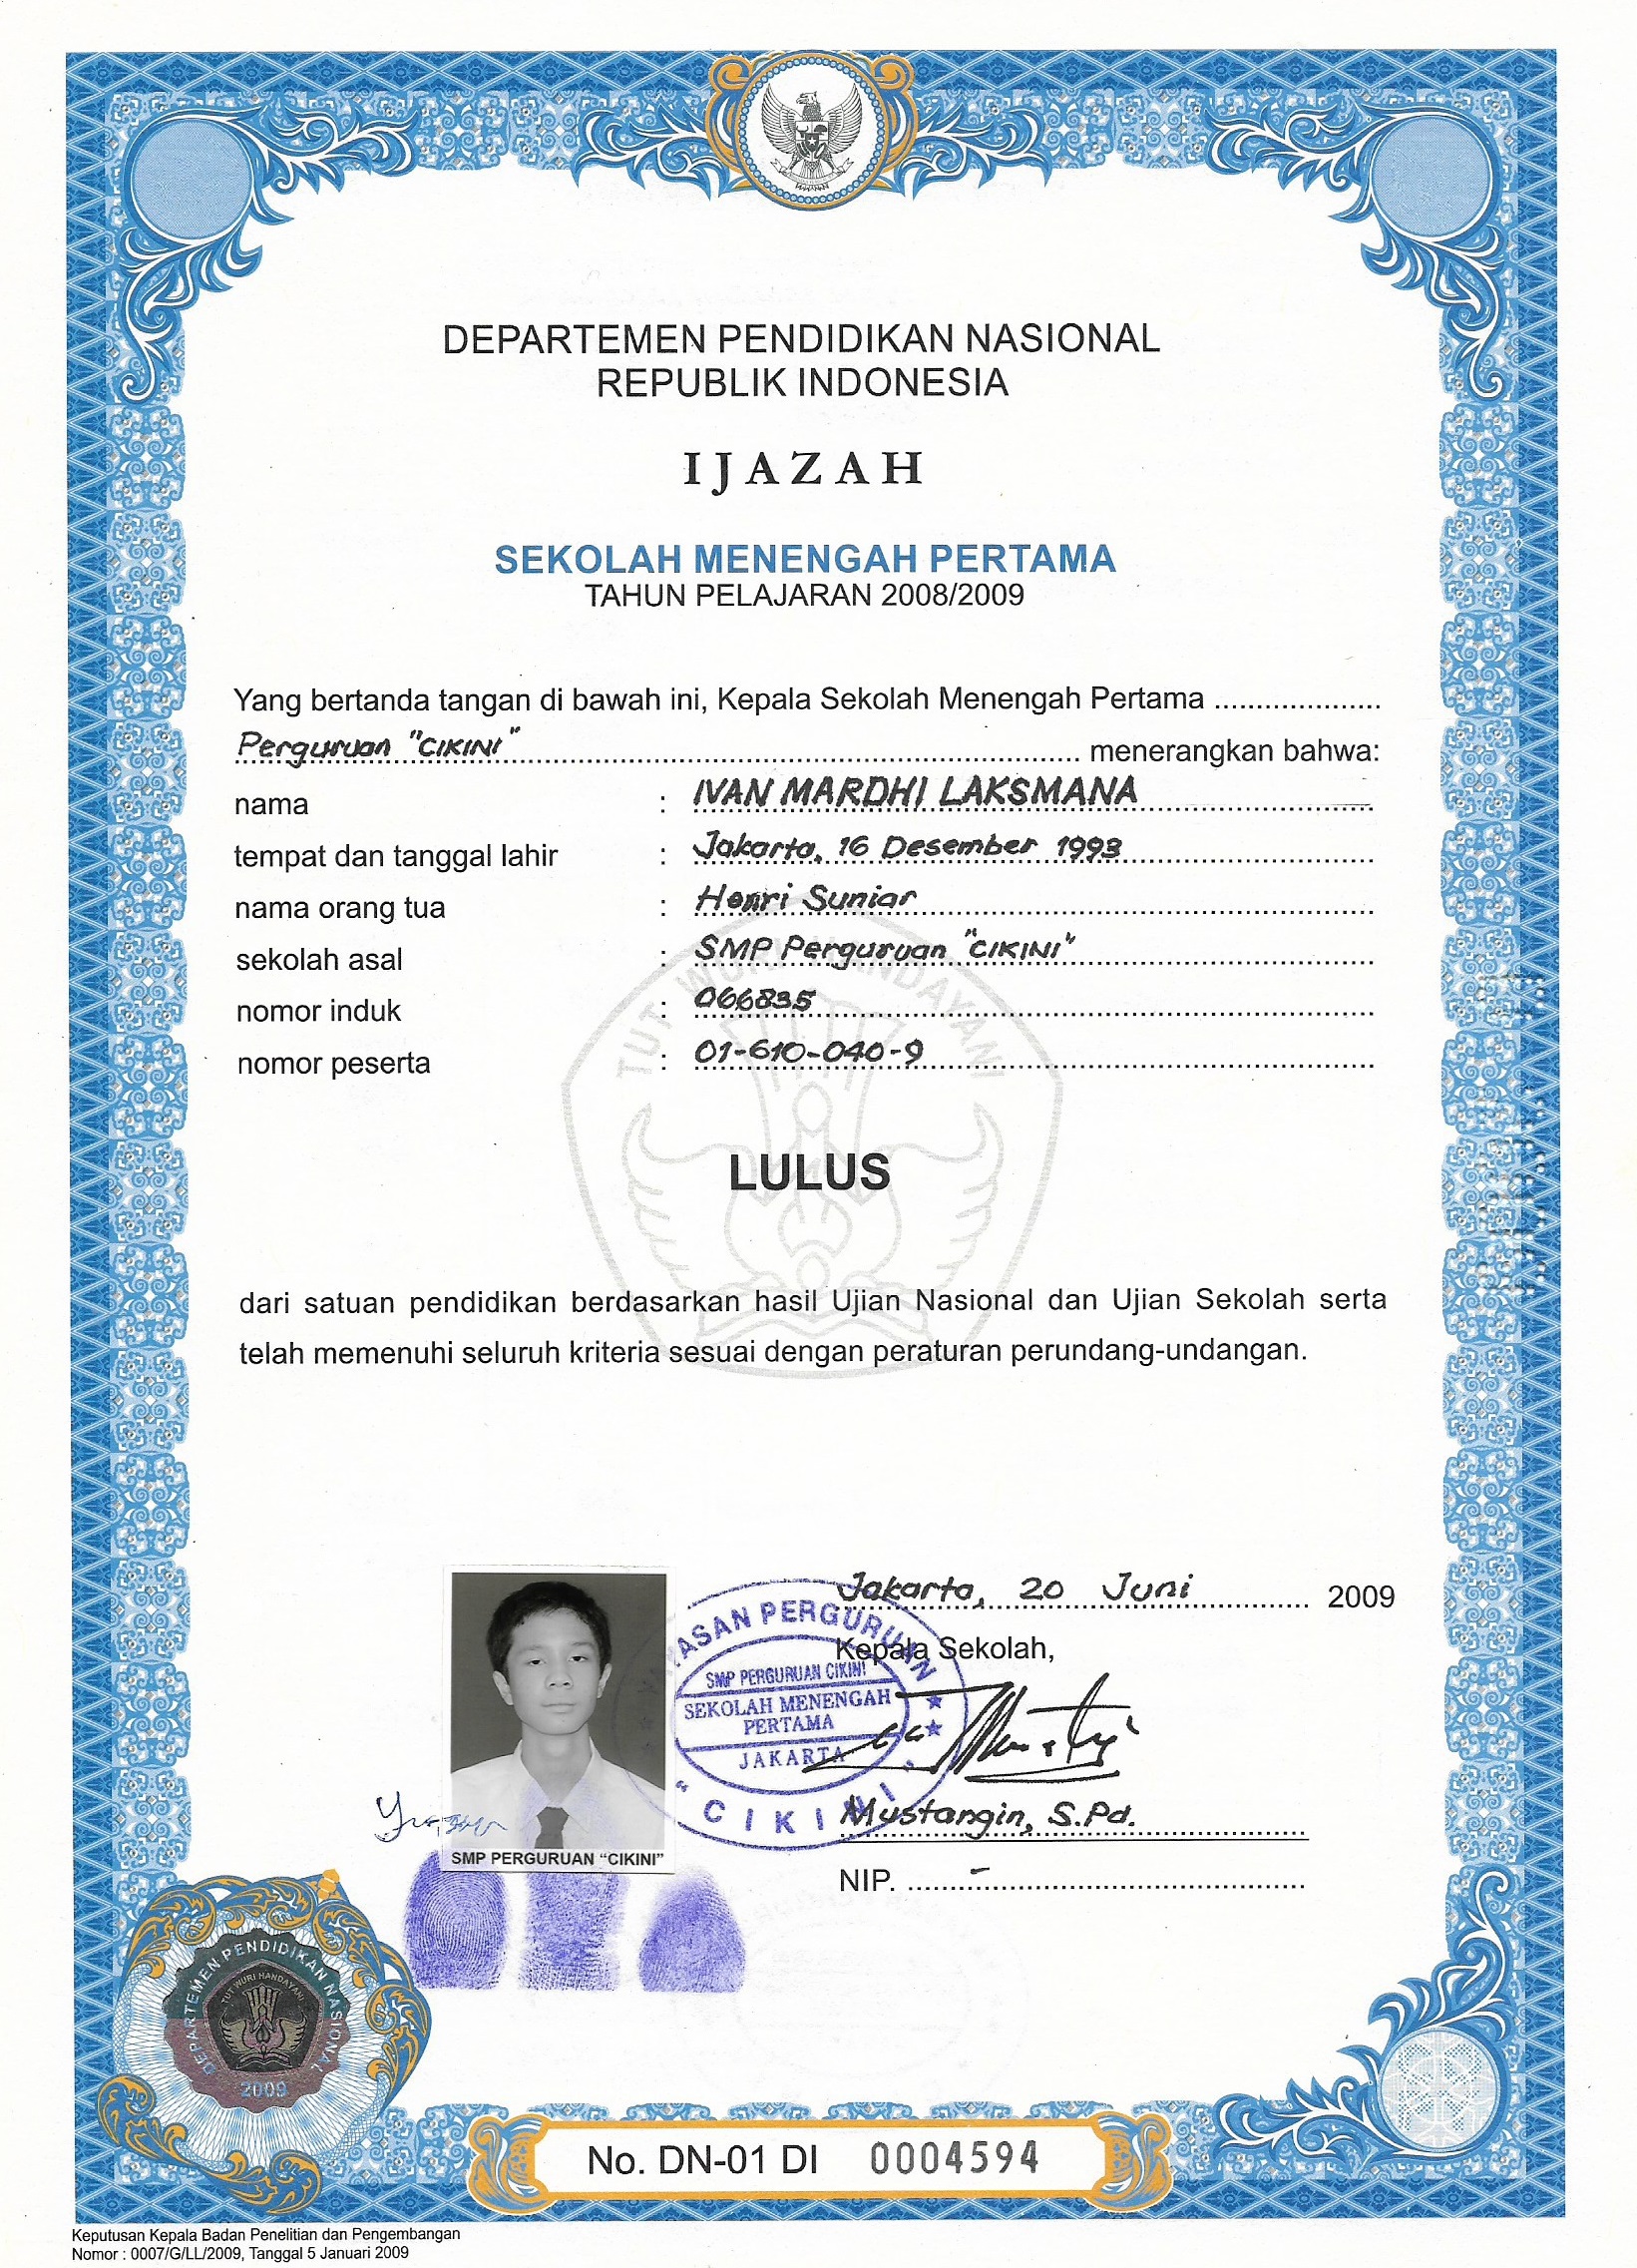 DEPARTEMEN PENDIDIKAN NASIONAL
REPUBLIK INDONESIA
IJAZAH
SEKOLAH MENENGAH PERTAMA
TAHUN PELAJARAN 2008/2009
Yang bertanda tangan di bawah ini, Kepala Sekolah Menengah Pertama ....................
Perguruan "CIKINI" ........................ menerangkan bahwa:
nama : IVAN MARDHI LAKSMANA
tempat dan tanggal lahir : Jakarta, 16 Desember 1993
nama orang tua : Henri Suniar
sekolah asal : SMP Perguruan "CIKINI"
nomor induk : 066835
nomor peserta : 01-610-040-9
TUT WURI HANDAYANI
LULUS
dari satuan pendidikan berdasarkan hasil Ujian Nasional dan Ujian Sekolah serta
telah memenuhi seluruh kriteria sesuai dengan peraturan perundang-undangan.
Jakarta, 20 Juni 2009
Kepala Sekolah,
YASAN PERGURUAN
SMP PERGURUAN CIKINI
SEKOLAH MENENGAH
PERTAMA
JAKARTA
"CIKINI"
Mustangin, S.Pd.
SMP PERGURUAN "CIKINI"
NIP. -
DEPARTEMEN PENDIDIKAN NASIONAL
TUT WURI HANDAYANI
2009
No. DN-01 DI 0004594
Keputusan Kepala Badan Penelitian dan Pengembangan
Nomor : 0007/G/LL/2009, Tanggal 5 Januari 2009